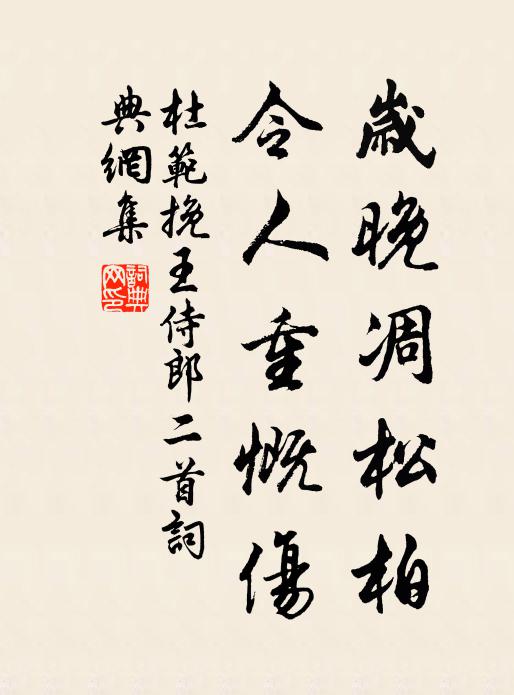 歲晚凋松柏
令人重慨傷
杜範挽王侍郎二首詞
典網集
詞典网印